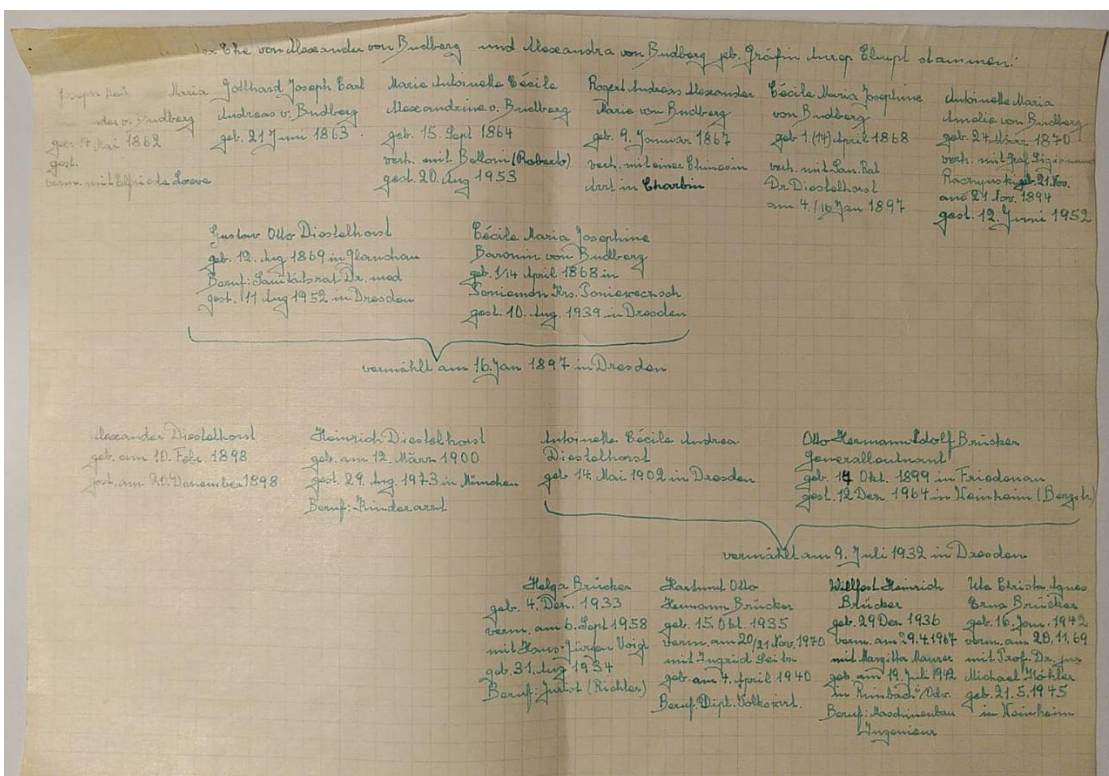 der Ehe von Alexander von Budberg und Alexandra von Budberg geb. Gräfin Anrep Elmpt stammen:
Joseph Maria
Alexander v. Budberg
geb. 17. Mai 1862
gest.
verm. mit Elfriede Loewe
Gotthard Joseph Carl
Andreas v. Budberg
geb. 21 Juni 1863
Marie Antoinette Cécile
Alexandrine v. Budberg
geb. 15. Sept 1864
verh. mit Belloni (Roberto)
gest. 20. Aug 1953
Roger Andreas Alexander
Marie von Budberg
geb. 9. Januar 1867
verh. mit einer Chinesin
Arzt in Charbin
Cécile Maria Josephine
von Budberg
geb 1 (14) April 1868
verh. mit San. Rat
Dr Diestelhorst
am 4./16 Jan 1897
Antoinette Maria
Amélie von Budberg
geb. 24. März 1870
verh. mit Graf Sigismund
Raczynski geb. 21 Nov.
am 21 Nov. 1894
gest. 12. Juni 1952
Gustav Otto Diestelhorst
geb. 12. Aug 1869 in Glauchau
Beruf: Sanitätsrat Dr. med
gest. 11 Aug 1952 in Dresden
Cécile Maria Josephine
Baronin von Budberg
geb. 1/14 April 1868 in
Poniemon Krs.
gest. 10. Aug. 1939 in Dresden
vermählt am 16. Jan 1897 in Dresden
Alexander Diestelhorst
geb. am 10. Febr. 1898
gest. am 20. Dezember 1898
Heinrich Diestelhorst
geb. am 12. März 1900
gest. 29. Aug. 1973 in München
Beruf: Kinderarzt
Antoinette Cécile Andrea
Diestelhorst
geb 14. Mai 1902 in Dresden
Otto Hermann Adolf Brücker
Generalleutnant
geb. Okt. 1899 in Friedenau
gest. 12 Dez 1964 in Weinheim (Bergstr)
vermählt am 9. Juli 1932 in Dresden
Helga Brücker
geb. 4. Dez. 1933
verm. am 6. Sept 1958
mit Hans-Jürgen Voigt
geb. 31. Aug 1934
Beruf: Jurist (Richter)
Hartmut Otto
Hermann Brücker
geb. 15. Okt. 1935
verm. am 20/21. Nov. 1970
mit Ingrid Seitz
geb. am 4. April 1940
Beruf: Dipl. Volkswirt.
Willfost Heinrich
Brücker
geb. 29 Dez 1936
verm. am 29.4.1967
mit Margitta Maurer
geb. am 19. Juli 1942
in Rimbach/Odw.
Beruf: Maschinenbau
Ingenieur
Ute Christa Agnes
Erna Brücker
geb. 16. Jan. 1942
verm. am 20.11.69
mit Prof. Dr. jur
Michael Köhler
geb. 21.5.1945
in Weinheim